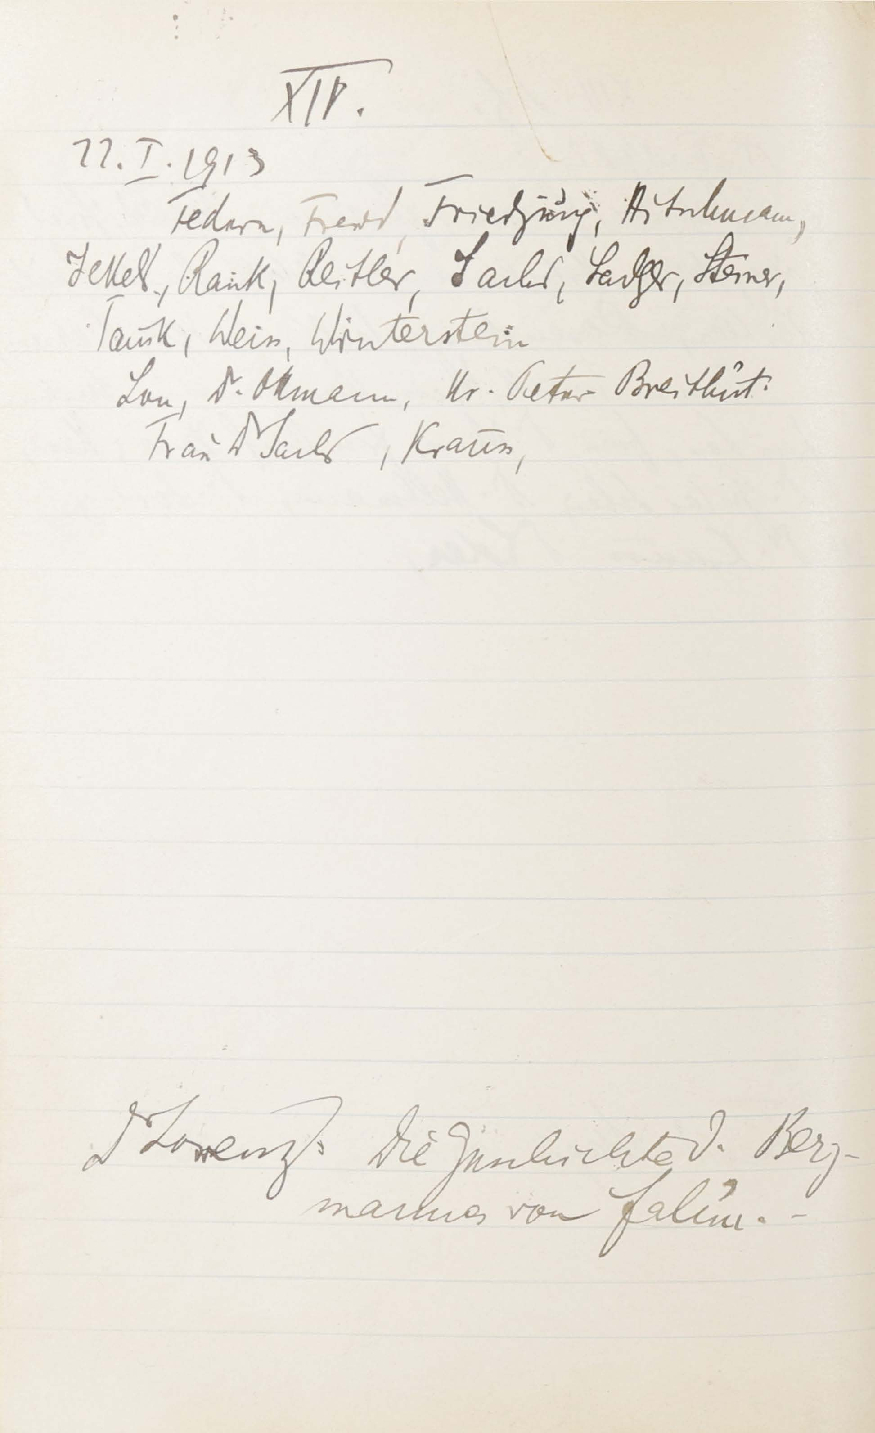 XIV.
22. I. 1913
Federn, Freud, Friedjung, Hitschmann,
Jekels, Rank, Reitler, Sachs, Sadger, Steiner,
Tausk, Weiss, Winterstein
Lou, Dr.
Frau Dr Sachs, Krauss,
Dr Lorenz: Die Geschichte d. Berg-
mannes von Falun. -